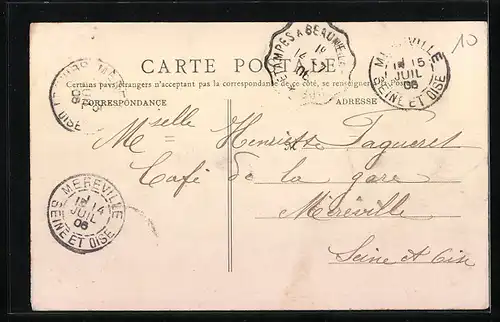 10
ETAMPES A BEAUNE
14
CARTE POSTALE
Certains pays étrangers n'acceptant pas la correspondance de ce côté, se renseigner à la Poste
CORRESPONDANCE
ADRESSE
MEREVILLE
15
JUIL
08
SEINE ET OISE
Melle Henriette Faqueret
Café de la gare
Méréville
Seine et Oise
MEREVILLE
14
JUIL
08
SEINE ET OISE